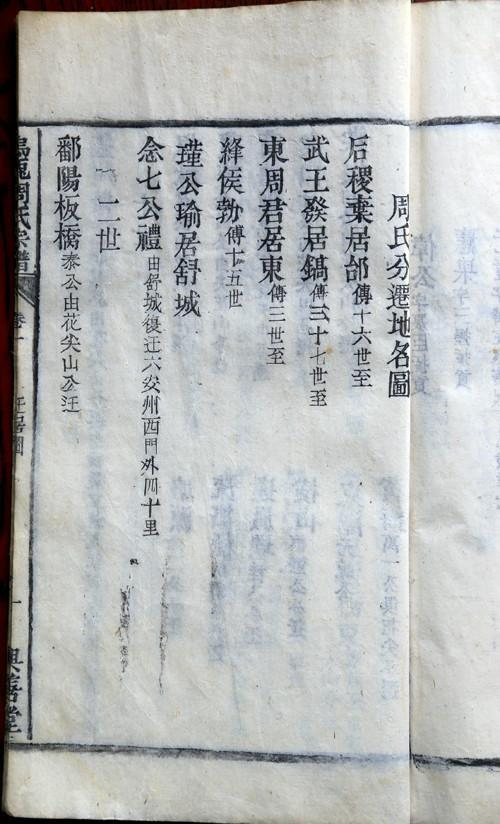 周氏分遷地名圖
后稷棄居邰傳十六世至
武王發居鎬傳三十七世至
東周君居東傳三世至
絳侯勃傳十五世
瑾公瑜居舒城
念七公禮由舒城復迁六安州西門外四十里
二世
鄱陽板橋泰公由花尖山分迁
周氏宗譜
卷一
迁居圖
一